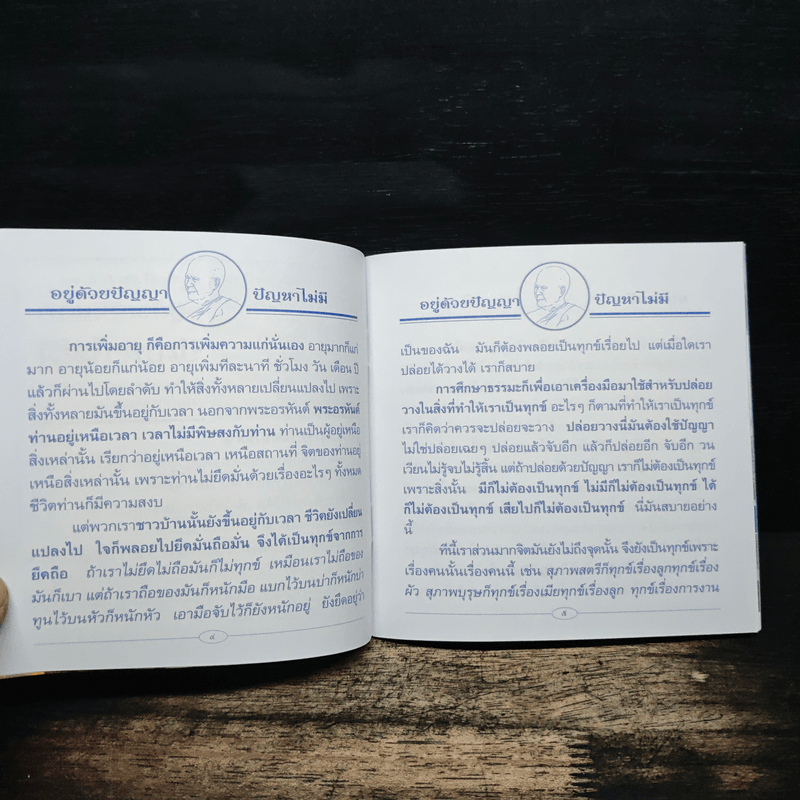 อยู่ด้วยปัญญา ปัญหาไม่มี
การเพิ่มอายุ ก็คือการเพิ่มความแก่นั่นเอง อายุมากก็แก่
มาก อายุน้อยก็แก่น้อย อายุเพิ่มทีละนาที ชั่วโมง วัน เดือน ปี
แล้วก็ผ่านไปโดยลำดับ ทำให้สิ่งทั้งหลายเปลี่ยนแปลงไป เพราะ
สิ่งทั้งหลายมันขึ้นอยู่กับเวลา นอกจากพระอรหันต์ พระอรหันต์
ท่านอยู่เหนือเวลา เวลาไม่มีพิษสงกับท่าน ท่านเป็นผู้อยู่เหนือ
สิ่งเหล่านั้น เรียกว่าอยู่เหนือเวลา เหนือสถานที่ จิตของท่านอยู่
เหนือสิ่งเหล่านั้น เพราะท่านไม่ยึดมั่นด้วยเรื่องอะไรๆ ทั้งหมด
ชีวิตท่านก็มีความสงบ
แต่พวกเราชาวบ้านนั้นยังขึ้นอยู่กับเวลา ชีวิตยังเปลี่ยน
แปลงไป ใจก็พลอยไปยึดมั่นถือมั่น จึงได้เป็นทุกข์จากการ
ยึดถือ ถ้าเราไม่ยึดไม่ถือมันก็ไม่ทุกข์ เหมือนเราไม่ถือของ
มันก็เบา แต่ถ้าเราถือของมันก็หนักมือ แบกไว้บนบ่าก็หนักบ่า
ทูนไว้บนหัวก็หนักหัว เอามือจับไว้ก็ยังหนักอยู่ ยังยึดอยู่ว่า
๔
อยู่ด้วยปัญญา ปัญหาไม่มี
เป็นของฉัน มันก็ต้องพลอยเป็นทุกข์เรื่อยไป แต่เมื่อใดเรา
ปล่อยได้วางได้ เราก็สบาย
การศึกษาธรรมะก็เพื่อเอาเครื่องมือมาใช้สำหรับปล่อย
วางในสิ่งที่ทำให้เราเป็นทุกข์ อะไรๆ ก็ตามที่ทำให้เราเป็นทุกข์
เราก็คิดว่าควรจะปล่อยจะวาง ปล่อยวางนี่มันต้องใช้ปัญญา
ไม่ใช่ปล่อยเฉยๆ ปล่อยแล้วจับอีก แล้วก็ปล่อยอีก จับอีก วน
เวียนไม่รู้จบไม่รู้สิ้น แต่ถ้าปล่อยด้วยปัญญา เราก็ไม่ต้องเป็นทุกข์
เพราะสิ่งนั้น มีก็ไม่ต้องเป็นทุกข์ ไม่มีก็ไม่ต้องเป็นทุกข์ ได้
ก็ไม่ต้องเป็นทุกข์ เสียไปก็ไม่ต้องเป็นทุกข์ นี่มันสบายอย่าง
นี้
ทีนี้เราส่วนมากจิตมันยังไม่ถึงจุดนั้น จึงยังเป็นทุกข์เพราะ
เรื่องคนนั้นเรื่องคนนี้ เช่น สุภาพสตรีก็ทุกข์เรื่องลูกทุกข์เรื่อง
ผัว สุภาพบุรุษก็ทุกข์เรื่องเมียทุกข์เรื่องลูก ทุกข์เรื่องการงาน
๕